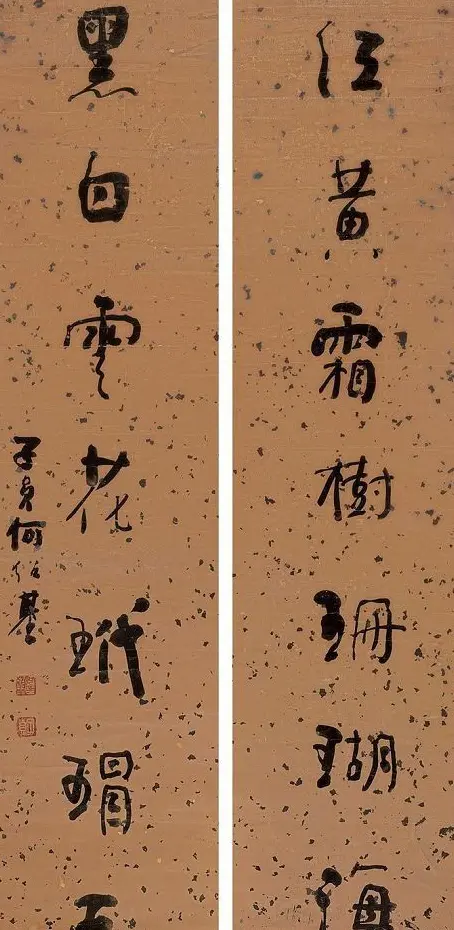 紅黃霜樹珊瑚海
黑白雲花玳瑁
子貞何紹基